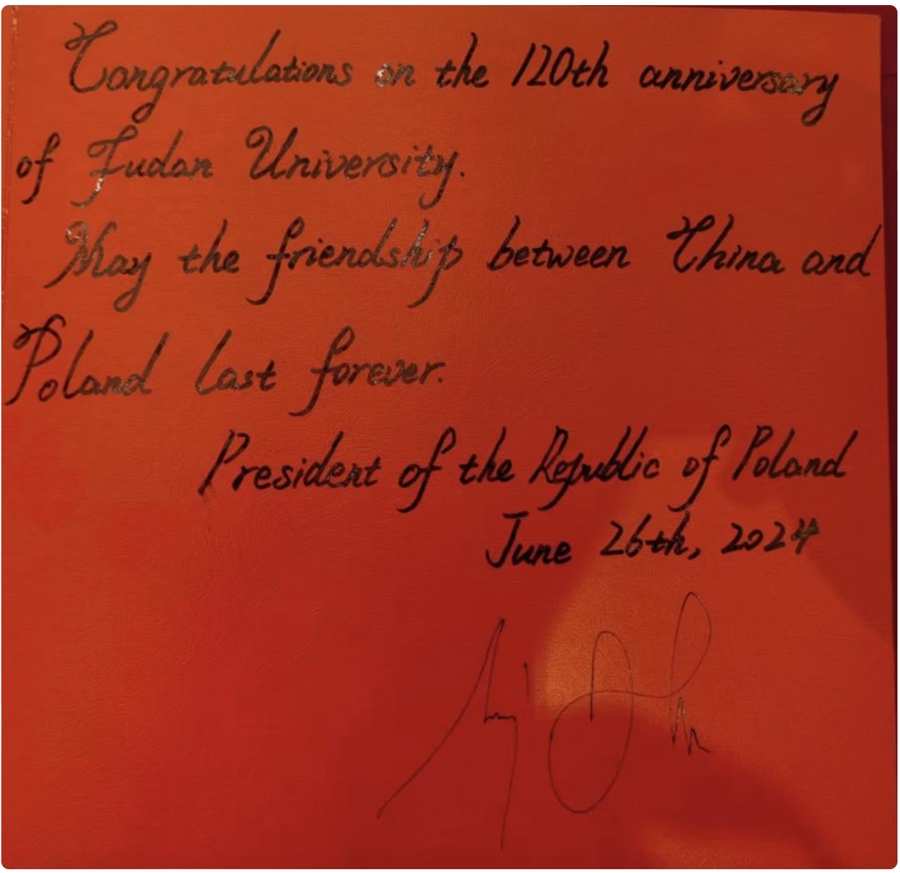 Congratulations on the 120th anniversary
of Fudan University.
May the friendship between China and
Poland last forever.
President of the Republic of Poland
June 26th, 2024